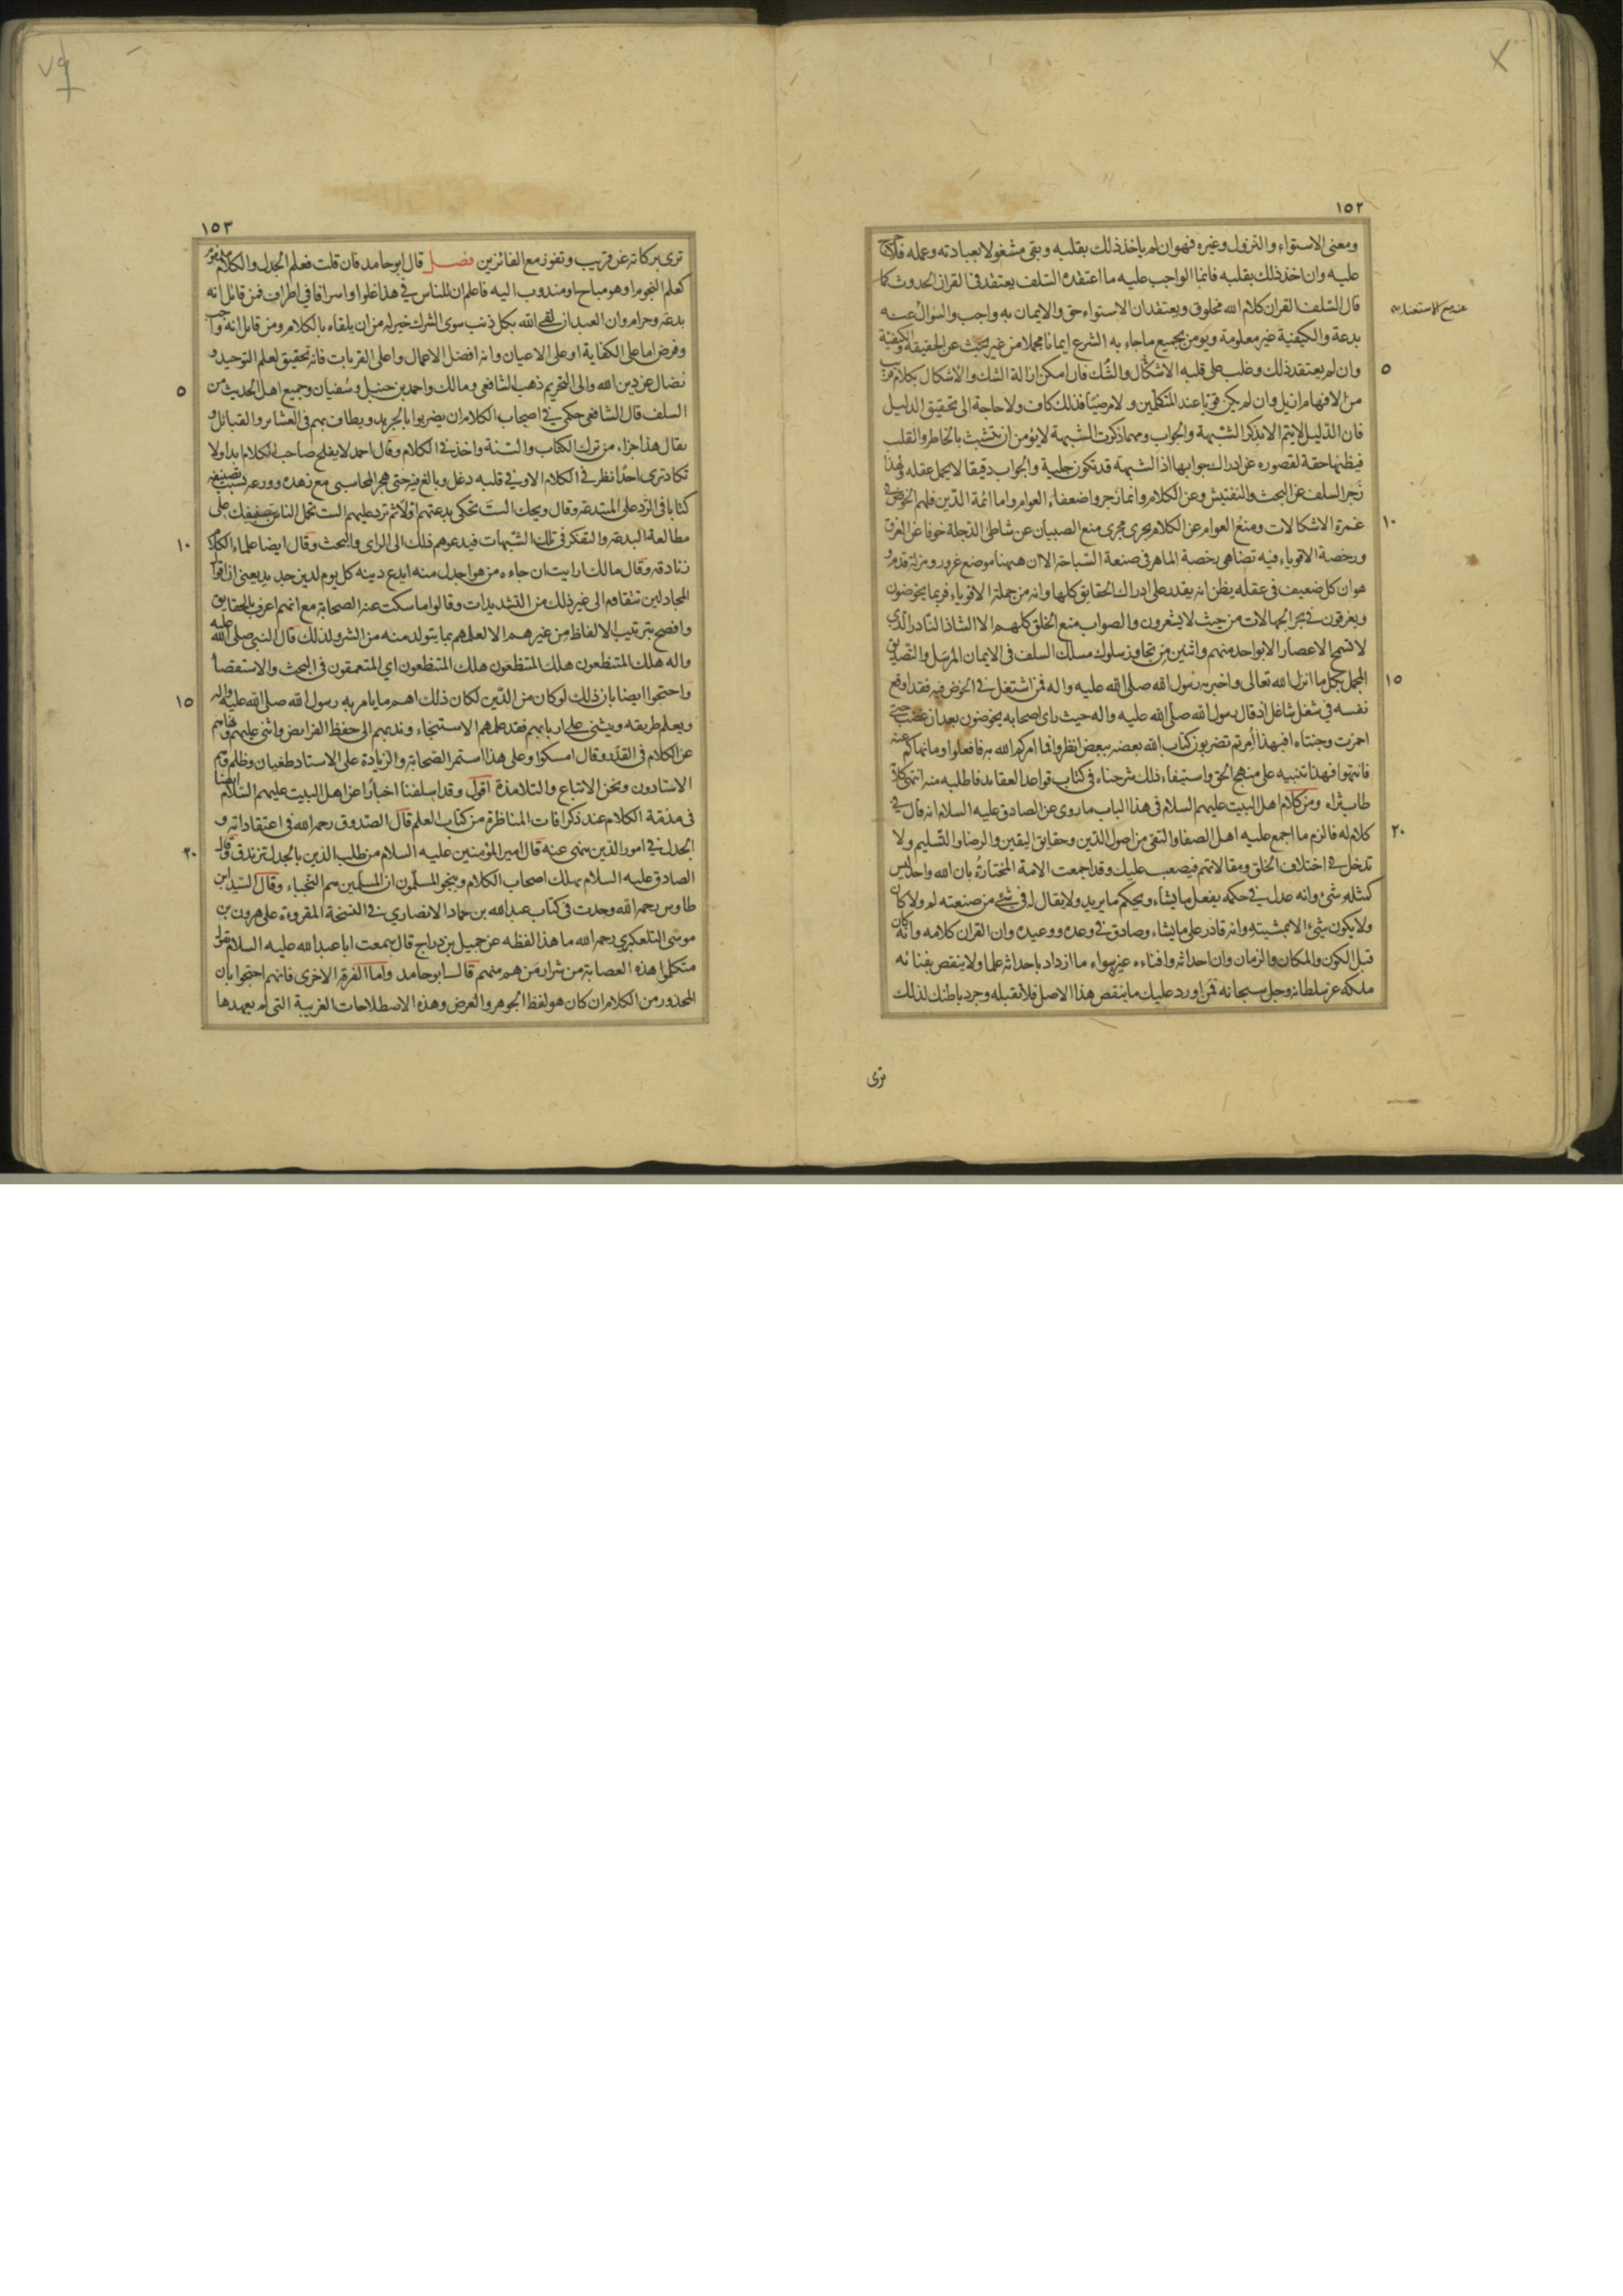 ١٥٢
ومعنى الاستواء والنزول وغيره فهو ان لم ياخذ ذلك بقلبه وبقى مشغولا بعبادته وعمله فلا حرج
عليه وان اخذ ذلك بقلبه فانما الواجب عليه ما اعتقده السلف يعتقد فى القران الحدوث كما
قال السلف القران كلام الله مخلوق ويعتقد ان الاستواء حق والايمان به واجب والسوال عنه
بدعة والكيفية غير معلومة ويومن بجميع ماجاء به الشرع ايمانا مجملا من غير بحث عن الحقيقة والكيفية
وان لم يعتقد ذلك وغلب على قلبه الاشكال والشك فان امكن ازالة الشك والاشكال بكلام قريب
٥
من الافهام ازيل وان لم يكن قويا عند المتكلمين ولا مرضيا فذلك كاف ولا حاجة الى تحقيق الدليل
فان الدليل لايتم الا بذكر الشبهة والجواب ومهما ذكرت الشبهة لايؤمن ان تتشبث بالخاطر والقلب
فيظنها حقة لقصوره عن ادراك جوابها اذ الشبهة قد تكون جلية والجواب دقيقا لا يحمل عقله ولهذا
زجر السلف عن البحث والتفتيش وعن الكلام وانما زجروا ضعفاء العوام واما ائمة الدين فلهم الخوض فى
غمرة الاشكالات ومنع العوام عن الكلام يجرى مجرى منع الصبيان عن شاطئ الدجلة خوفا عن الغرق
١٠
ورخصة الاقوياء فيه تضاهى رخصة الماهر فى صنعة السباحة الا ان هيهنا موضع غرور ومزلة قدم و
هو ان كل ضعيف فى عقله يظن انه يقدر على ادراك الحقايق كلها وانه من جملة الاقوياء فربما يخوضون
ويغرقون فى بحر الجهالات من حيث لا يشعرون والصواب منع الخلق كلهم الا الشاذ النادر الذى
لا تسمح الاعصار الا بواحد منهم واثنين من تجاوز سلوك مسلك السلف فى الايمان المرسل والتصديق
المجمل بكل ما انزل الله تعالى واخبر به رسول الله صلى الله عليه واله فمن اشتغل فى الخوض فيه فقد اوقع
١٥
نفسه فى شغل شاغل اذ قال رسول الله صلى الله عليه واله حيث راى اصحابه يخوضون بعد ان غضب حتى
احمرت وجنتاه افبهذا امرتم تضربون كتاب الله بعضه ببعض انظروا فما امركم الله به فافعلوا وما نهاكم عنه
فانتهوا فهذا تنبيه على منهج الحق واستيفاء ذلك شرحناه فى كتاب قواعد العقايد فاطلبه منه انتهى كلامه
طاب ثراه ومن كلام اهل البيت عليهم السلام فى هذا الباب ما روى عن الصادق عليه السلام انه قال فى
كلام له فالزم ما اجمع عليه اهل الصفا والتقى من اصول الدين وحقايق اليقين والرضا والتسليم ولا
٢٠
تدخل فى اختلاف الخلق ومقالاتهم فيصعب عليك وقد اجمعت الامة المختارة بان الله واحد ليس
كمثله شئ وانه عدل فى حكمه يفعل ما يشاء ويحكم ما يريد ولا يقال له فى شئ من صنعته لم ولا كان
ولا يكون شئ الا بمشيته وانه قادر على ما يشاء وصادق فى وعده ووعيده وان القران كلامه وانه كان
قبل الكون والمكان والزمان وان احداثه وافناءه عنده سواء ما ازداد باحداثه علما ولا ينقص بفنائه
ملكه عز سلطانه وجل سبحانه فمن اورد عليك ما ينقض هذا الاصل فلا تقبله وجرد باطنك لذلك
ترى
١٥٣
ترى بركاته عن قريب وتفوز مع الفائزين فصل قال ابو حامد فان قلت فعلم الجدل والكلام مذموم
كعلم النجوم او هو مباح او مندوب اليه فاعلم ان للناس فى هذا غلوا واسرافا فى اطراف فمن قائل انه
بدعة وحرام وان العبد ان لقى الله بكل ذنب سوى الشرك خير له من ان يلقاه بالكلام ومن قائل انه واجب
وفرض اما على الكفاية او على الاعيان وانه افضل الاعمال واعلى القربات فانه تحقيق لعلم التوحيد و
نضال عن دين الله والى التحريم ذهب الشافعى ومالك واحمد بن حنبل وسفيان وجميع اهل الحديث من
٥
السلف قال الشافعى حكمى فى اصحاب الكلام ان يضربوا بالجريد ويطاف بهم فى العشاير والقبائل و
يقال هذا جزاء من ترك الكتاب والسنة واخذ فى الكلام وقال احمد لا يفلح صاحب الكلام ابدا ولا
تكاد ترى احدا نظر فى الكلام الا وفى قلبه دغل وبالغ فيه حتى هجر المحاسبى مع زهده وورعه بسبب تصنيفه
كتابا فى الرد على المبتدعة وقال ويحك الست تحكى بدعتهم اولا ثم ترد عليهم الست تحمل الناس بتصنيفك على
مطالعة البدعة والتفكر فى تلك الشبهات فيدعوهم ذلك الى الراى والبحث وقال ايضا علماء الكلام
١٠
زنادقه وقال مالك ارايت ان جاءه من هو اجدل منه ايدع دينه كل يوم لدين جديد يعنى ان اقوال
المجادلين تتقاوم الى غير ذلك من التشديدات وقالوا ما سكت عنه الصحابة مع انهم اعرف بالحقايق
وافصح بترتيب الالفاظ من غيرهم الا لعلمهم بما يتولد منه من الشر ولذلك قال النبى صلى الله عليه
واله هلك المتنطعون هلك المتنطعون هلك المتنطعون اى المتعمقون فى البحث والاستقصاء
واحتجوا ايضا بان ذلك لو كان من الدين لكان ذلك اهم ما يامر به رسول الله صلى الله عليه واله
١٥
ويعلم طريقه ويثنى على اربابهم فقد علمهم الاستنجاء وندبهم الى حفظ الفرايض واثنى عليهم ونهاهم
عن الكلام فى القدر وقال امسكوا وعلى هذا استمر الصحابة والزيادة على الاستاد طغيان وظلم وهم
الاستادون ونحن الاتباع والتلامذة اقول وقد اسلفنا اخبارا عن اهل البيت عليهم السلام ايضا
فى مذمة الكلام عند ذكر افات المناظرة من كتاب العلم قال الصدوق رحمه الله فى اعتقاداته و
الجدل فى امور الدين منهى عنه قال امير المؤمنين عليه السلام من طلب الدين بالجدل تزندق وقال
٢٠
الصادق عليه السلام يهلك اصحاب الكلام وينجو المسلمون ان المسلمين هم النجباء وقال السيد ابن
طاوس رحمه الله وجدت فى كتاب عبدالله بن حماد الانصاري فى النسخة المقروءة على هرون بن
موسى التلعكبري رحمه الله ما هذا لفظه عن جميل بن دراج قال سمعت ابا عبد الله عليه السلام يقول
متكلموا هذه العصابة من شرار من هم منهم قال ابو حامد واما الفرقة الاخرى فانهم احتجوا بان
المحذور من الكلام ان كان هو لفظ الجوهر والعرض وهذه الاصطلاحات الغريبة التى لم يعهدها